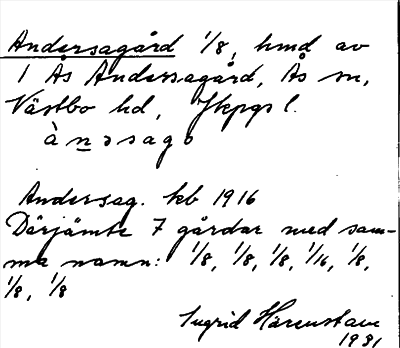 Andersagård 1/8, hmd av
1 Ås Andersagård, Ås sn,
Västbo hd, Jkpgs l.
ànəsago
Andersag. kb 1916
Därjämte 7 gårdar med sam-
ma namn: 1/8, 1/8, 1/8, 1/16, 1/8,
1/8, 1/8
Ingrid Härenstam
1931